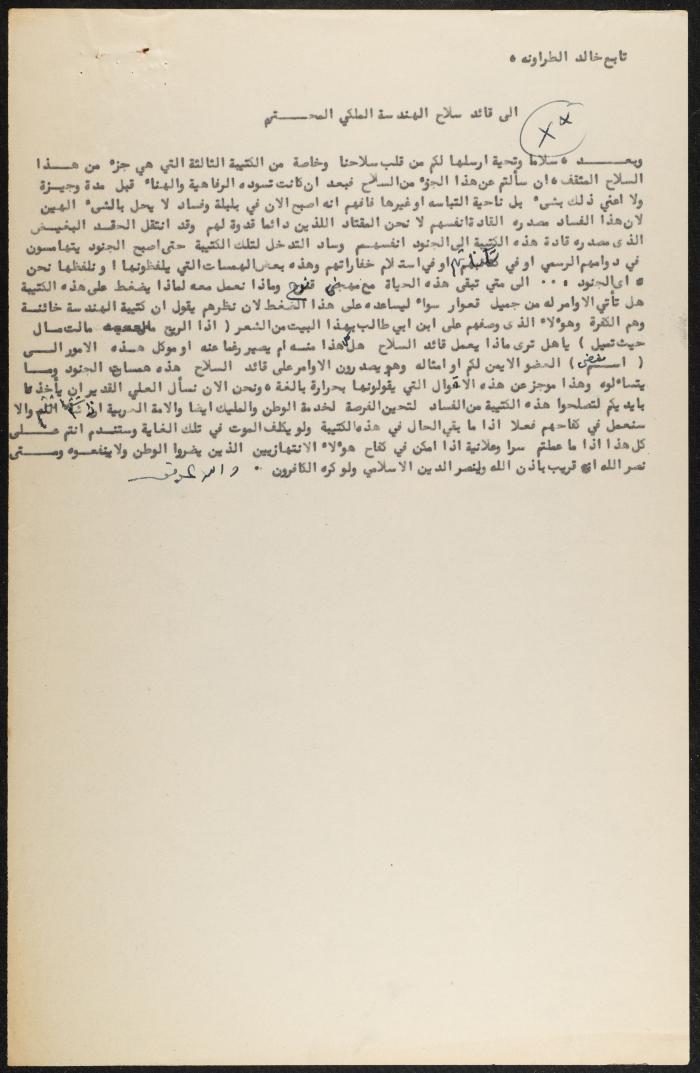 تابع خالد الطراونه ٠
الى قائد سلاح الهندسة الملكي المحـــــترم
وبعـــــد ٠ سلاما وتحية ارسلها لكم من قلب سلاحنا وخاصة من الكتيبة الثالثة التي هي جزء من هـــذا
السلاح المثقف ٠ ان سألتم عن هذا الجزء من السلاح فبعد ان كانت تسوده الرفاهية والهناء قبل مدة وجيــزة
ولا اعني ذلك بشيء بل ناحية التباسه او غيرها فافهم انه اصبح الان في بلبلة وفساد لا يحل بالشيء الهين
لان هذا الفساد مصدره القادة انفسهم لا نحن المقتاد اللذين دائما قدوة لهم وقد انتقل الحقد البغيـض
الذى مصدره قادة هذه الكتيبة الى الجنود انفسهـم وساد التدخل لتلك الكتيبة حتى اصبح الجنود يتهامسون
في دوامهم الرسمي او في او في استلام خفاراتهم وهذه بعض الهمسات التي يلفظونها او نلفظها نحن
٠ اى الجنود ٠ ٠٠ الى متى تبقى هذه الحياة مع مهجني قنوح وماذا نعمل معه لماذا يضغط على هذه الكتيبة
هل تأتي الاوامر له من جميل قعوار سواء ليساعده على هذا الضغط لان نظرهم يقول ان كتيبة الهندسة خائنـة
وهم الكفرة وهوءلاء الذى وصفهم على ابن ابي طالب بهذا البيت من الشعر ( اذا الريح مالت مــال
حيث تميل ) يا هل ترى ماذا يعمل قائد السلاح هل هذا منـه ام يصير رغما عنه او موكل هــذه الامور الــى
( العضو الايمن لكم او امثاله وهم يصدرون الاوامر على قائد السلاح هذه همسات الجنود ومــا
يتساءلوه وهذا موجز عن هذه الاقوال التي يقولونها بحرارة بالغة ٠ ونحن الان نسأل العلي القدير ان يأخذنا
بايديكم لتصلحوا هذه الكتيبة من الفساد لتحين الفرصة لخدمة الوطن والمليك ايضا والامة العربية والا
سنعمل في كفاحهم فعلا اذا ما بقي الحال في هذه الكتيبة ولو يكلف الموت في تلك الغاية وستندم انتم علــى
كل هذا اذا ما عملتم سرا وعلانية اذا امكن في كفاح هوءلاء الانتهازيين الذين يضروا الوطن ولا ينفعــوه ومــتى
نصر الله انه قريب باذن الله ولينصر الدين الاسلامي ولو كره الكافرون ٠